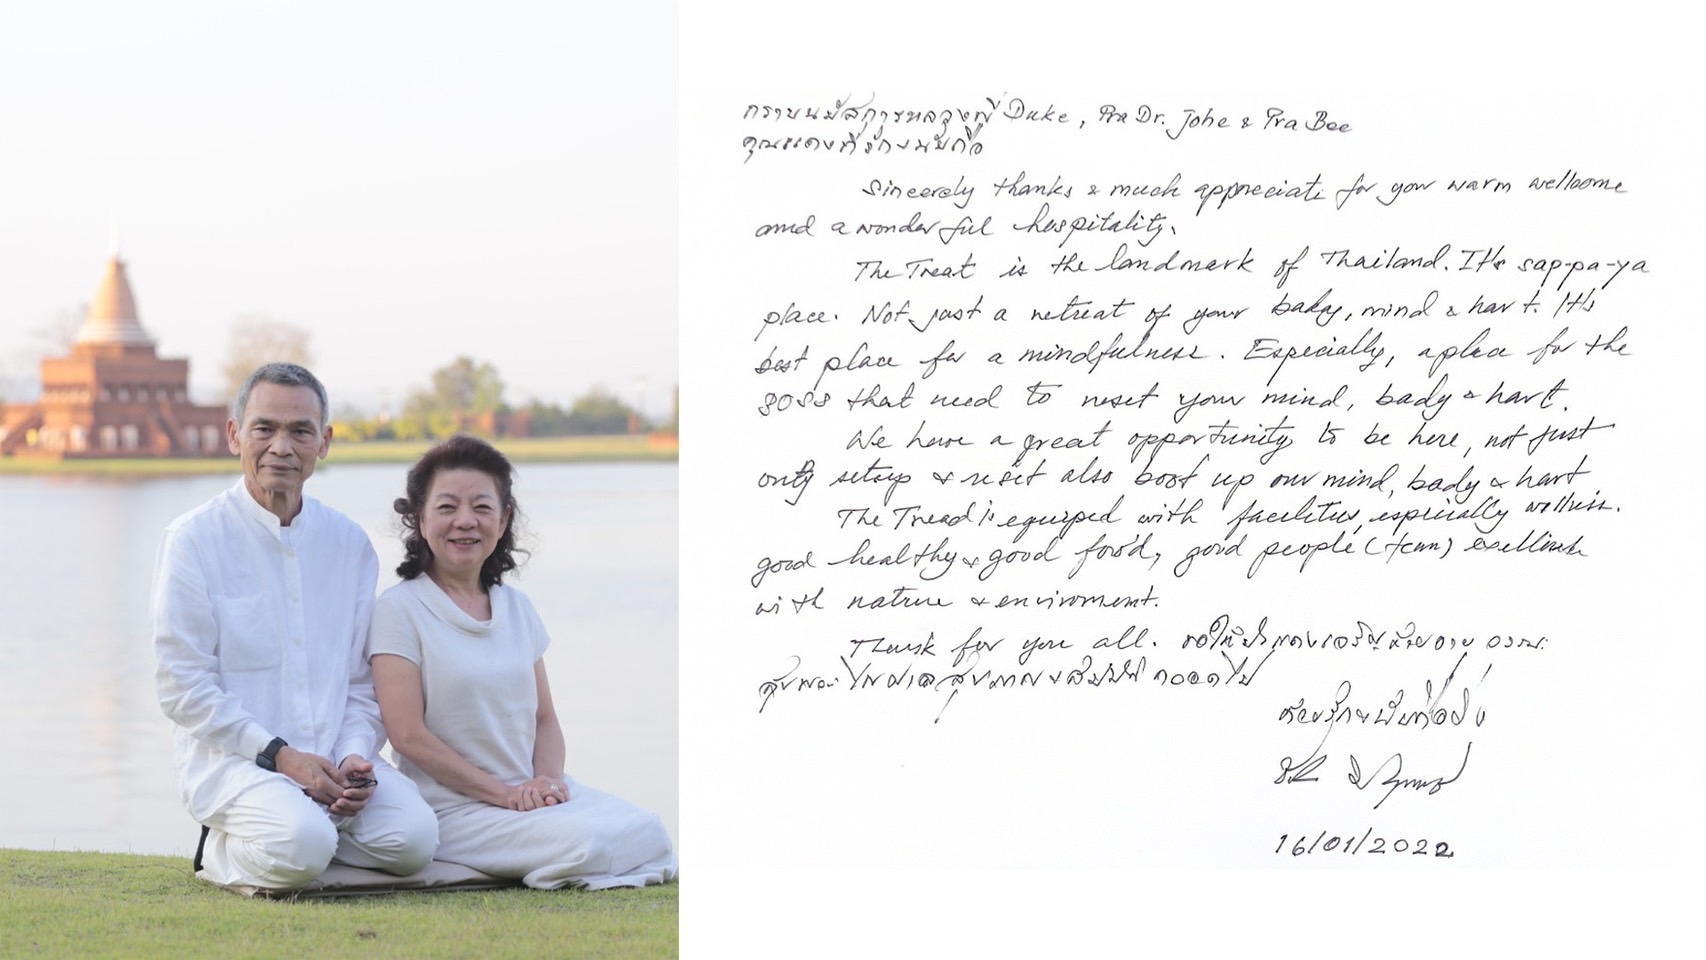 กราบนมัสการหลวงพี่ Duke, Pra Dr. Johe & Pra Bee
คุณแดงที่รักงนับถือ
Sincerely thanks & much appreciate for your warm wellcome
and a wonderful hospitality.
The Treat is the landmark of Thailand. It's sap-pa-ya
place. Not just a retreat of your bady, mind & hart. It's
best place for a mindfulness. Especially, a place for the
that need to reset your mind, bady & hart.
We have a great opportunity to be here, not just
only setup & reset also boot up our mind, bady & hart
The Tread is equiped with facilities, especially wellness.
good healthy & good food, good people (team) excellent
with nature & enviroment.
Thank for you all. ขอให้
สุข
16/01/2022